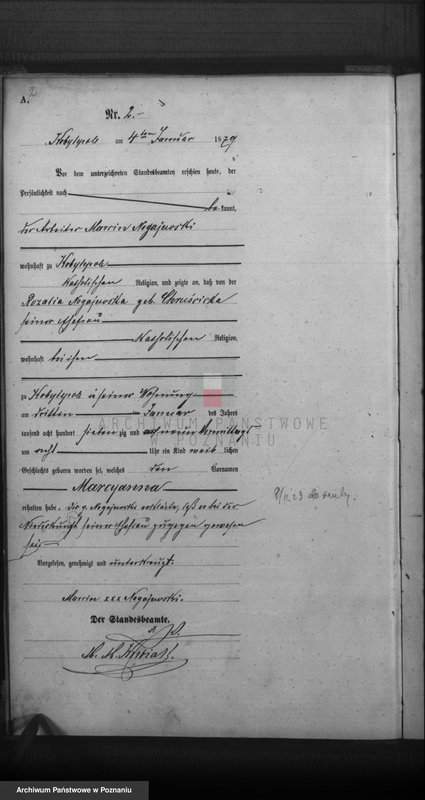 2
A.
Nr. 2.
Kobylepole am 4ten Januar 1879
Vor dem unterzeichneten Standesbeamten erschien heute, der
Persönlichkeit nach
be kannt,
der Arbeiter Marcin Nogajewski
wohnhaft zu Kobylepole
katholischen Religion, und zeigte an, daß von der
Rozalia Nogajewska geb.
seiner Ehefrau
katholischen Religion,
wohnhaft bei ihm
zu Kobylepole in seiner Wohnung
am dritten Januar des Jahres
tausend acht hundert siebenzig und neun Vormittags
um acht Uhr ein Kind weib lichen
Geschlechts geboren worden sei, welches den Vornamen
Marcyanna
erhalten habe. Der p. Nogajewski erklärte, daß er bei der
Niederkunft seiner Ehefrau zugegen gewesen
sei
Vorgelesen, genehmigt und unterkreuzt.
Marcin xxx Nogajewski.
Der Standesbeamte.
ARCHIWUM PAŃSTWOWE
W POZNANIU
Archiwum Państwowe w Poznaniu